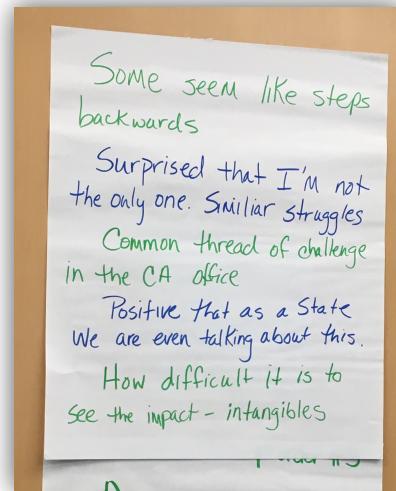 Some seem like steps
backwards
Surprised that I'm not
the only one. Similiar struggles
Common thread of challenge
in the CA office
Positive that as a State
We are even talking about this.
How difficult it is to
see the impact - intangibles